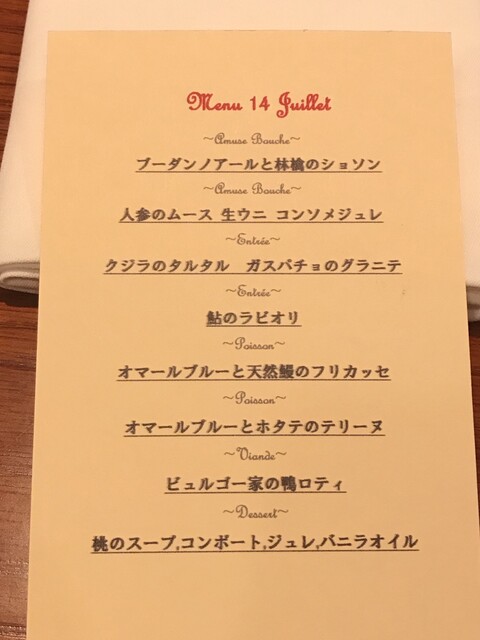 Menu 14 Juillet
～Amuse Bouche～
ブーダンノアールと林檎のショソン
～Amuse Bouche～
人参のムース 生ウニ コンソメジュレ
～Entrée～
クジラのタルタル　ガスパチョのグラニテ
～Entrée～
鮎のラビオリ
～Poisson～
オマールブルーと天然鰻のフリカッセ
～Poisson～
オマールブルーとホタテのテリーヌ
～Viande～
ビュルゴー家の鴨ロティ
～Dessert～
桃のスープ,コンポート,ジュレ,バニラオイル